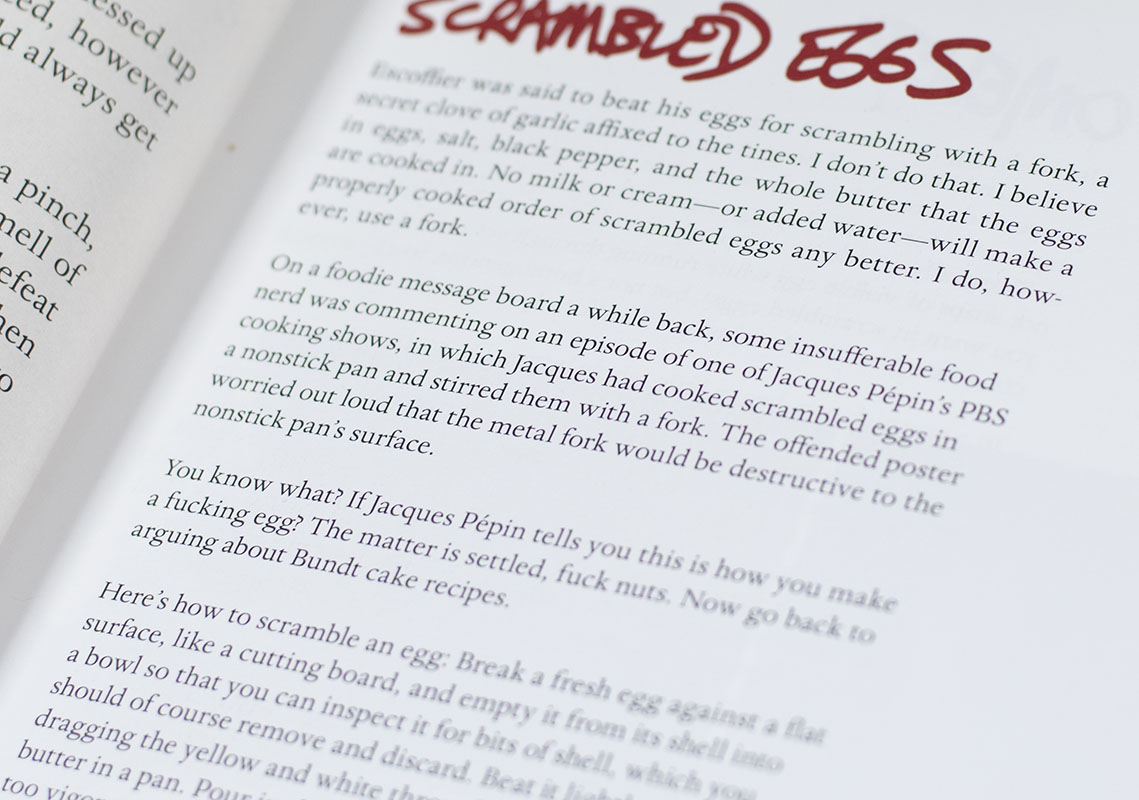 essed up
ed, however
d always get
a pinch,
mell of
efeat
hen
o
SCRAMBLED EGGS
Escoffier was said to beat his eggs for scrambling with a fork, a
secret clove of garlic affixed to the tines. I don't do that. I believe
in eggs, salt, black pepper, and the whole butter that the eggs
are cooked in. No milk or cream—or added water—will make a
properly cooked order of scrambled eggs any better. I do, how-
ever, use a fork.
On a foodie message board a while back, some insufferable food
nerd was commenting on an episode of one of Jacques Pépin's PBS
cooking shows, in which Jacques had cooked scrambled eggs in
a nonstick pan and stirred them with a fork. The offended poster
worried out loud that the metal fork would be destructive to the
nonstick pan's surface.
You know what? If Jacques Pépin tells you this is how you make
a fucking egg? The matter is settled, fuck nuts. Now go back to
arguing about Bundt cake recipes.
Here's how to scramble an egg: Break a fresh egg against a flat
surface, like a cutting board, and empty it from its shell into
a bowl so that you can inspect it for bits of shell, which you
should of course remove and discard. Beat it lightl
dragging the yellow and white thro
butter in a pan. Pour
too vigo